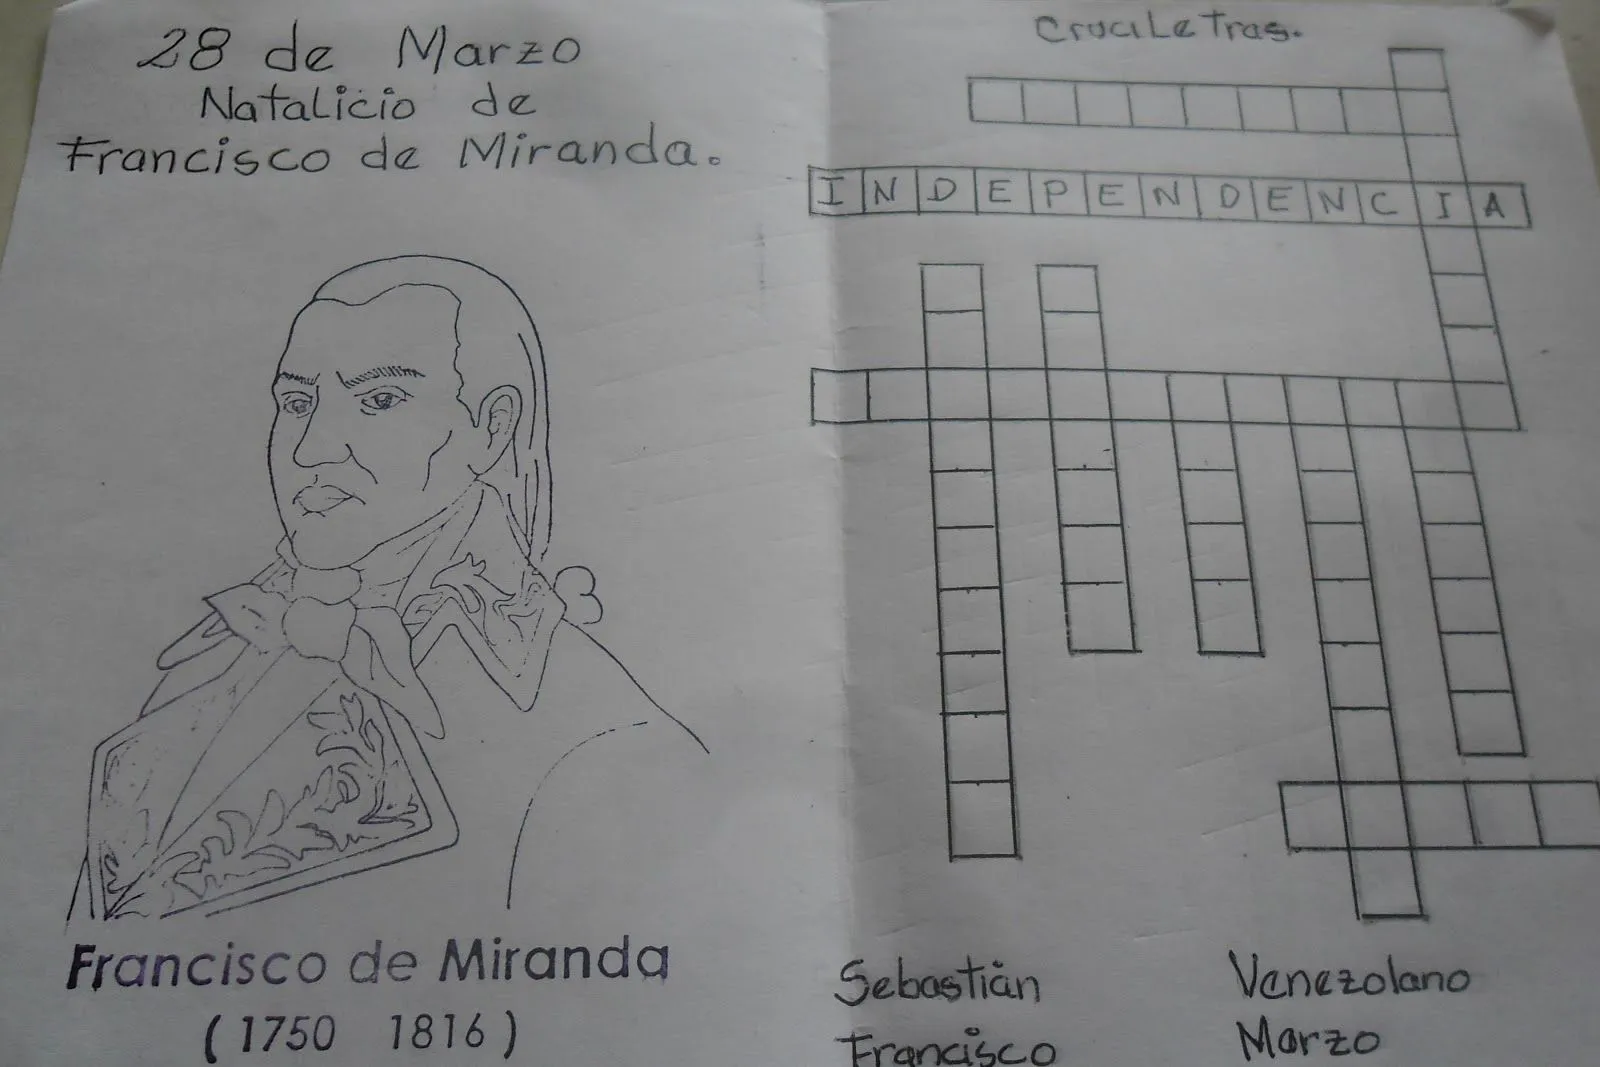 28 de Marzo
Natalicio de
Francisco de Miranda.
Francisco de Miranda
(1750 1816)
CruciLetras.
INDEPENDENCIA
Sebastián
Francisco
Venezolano
Marzo